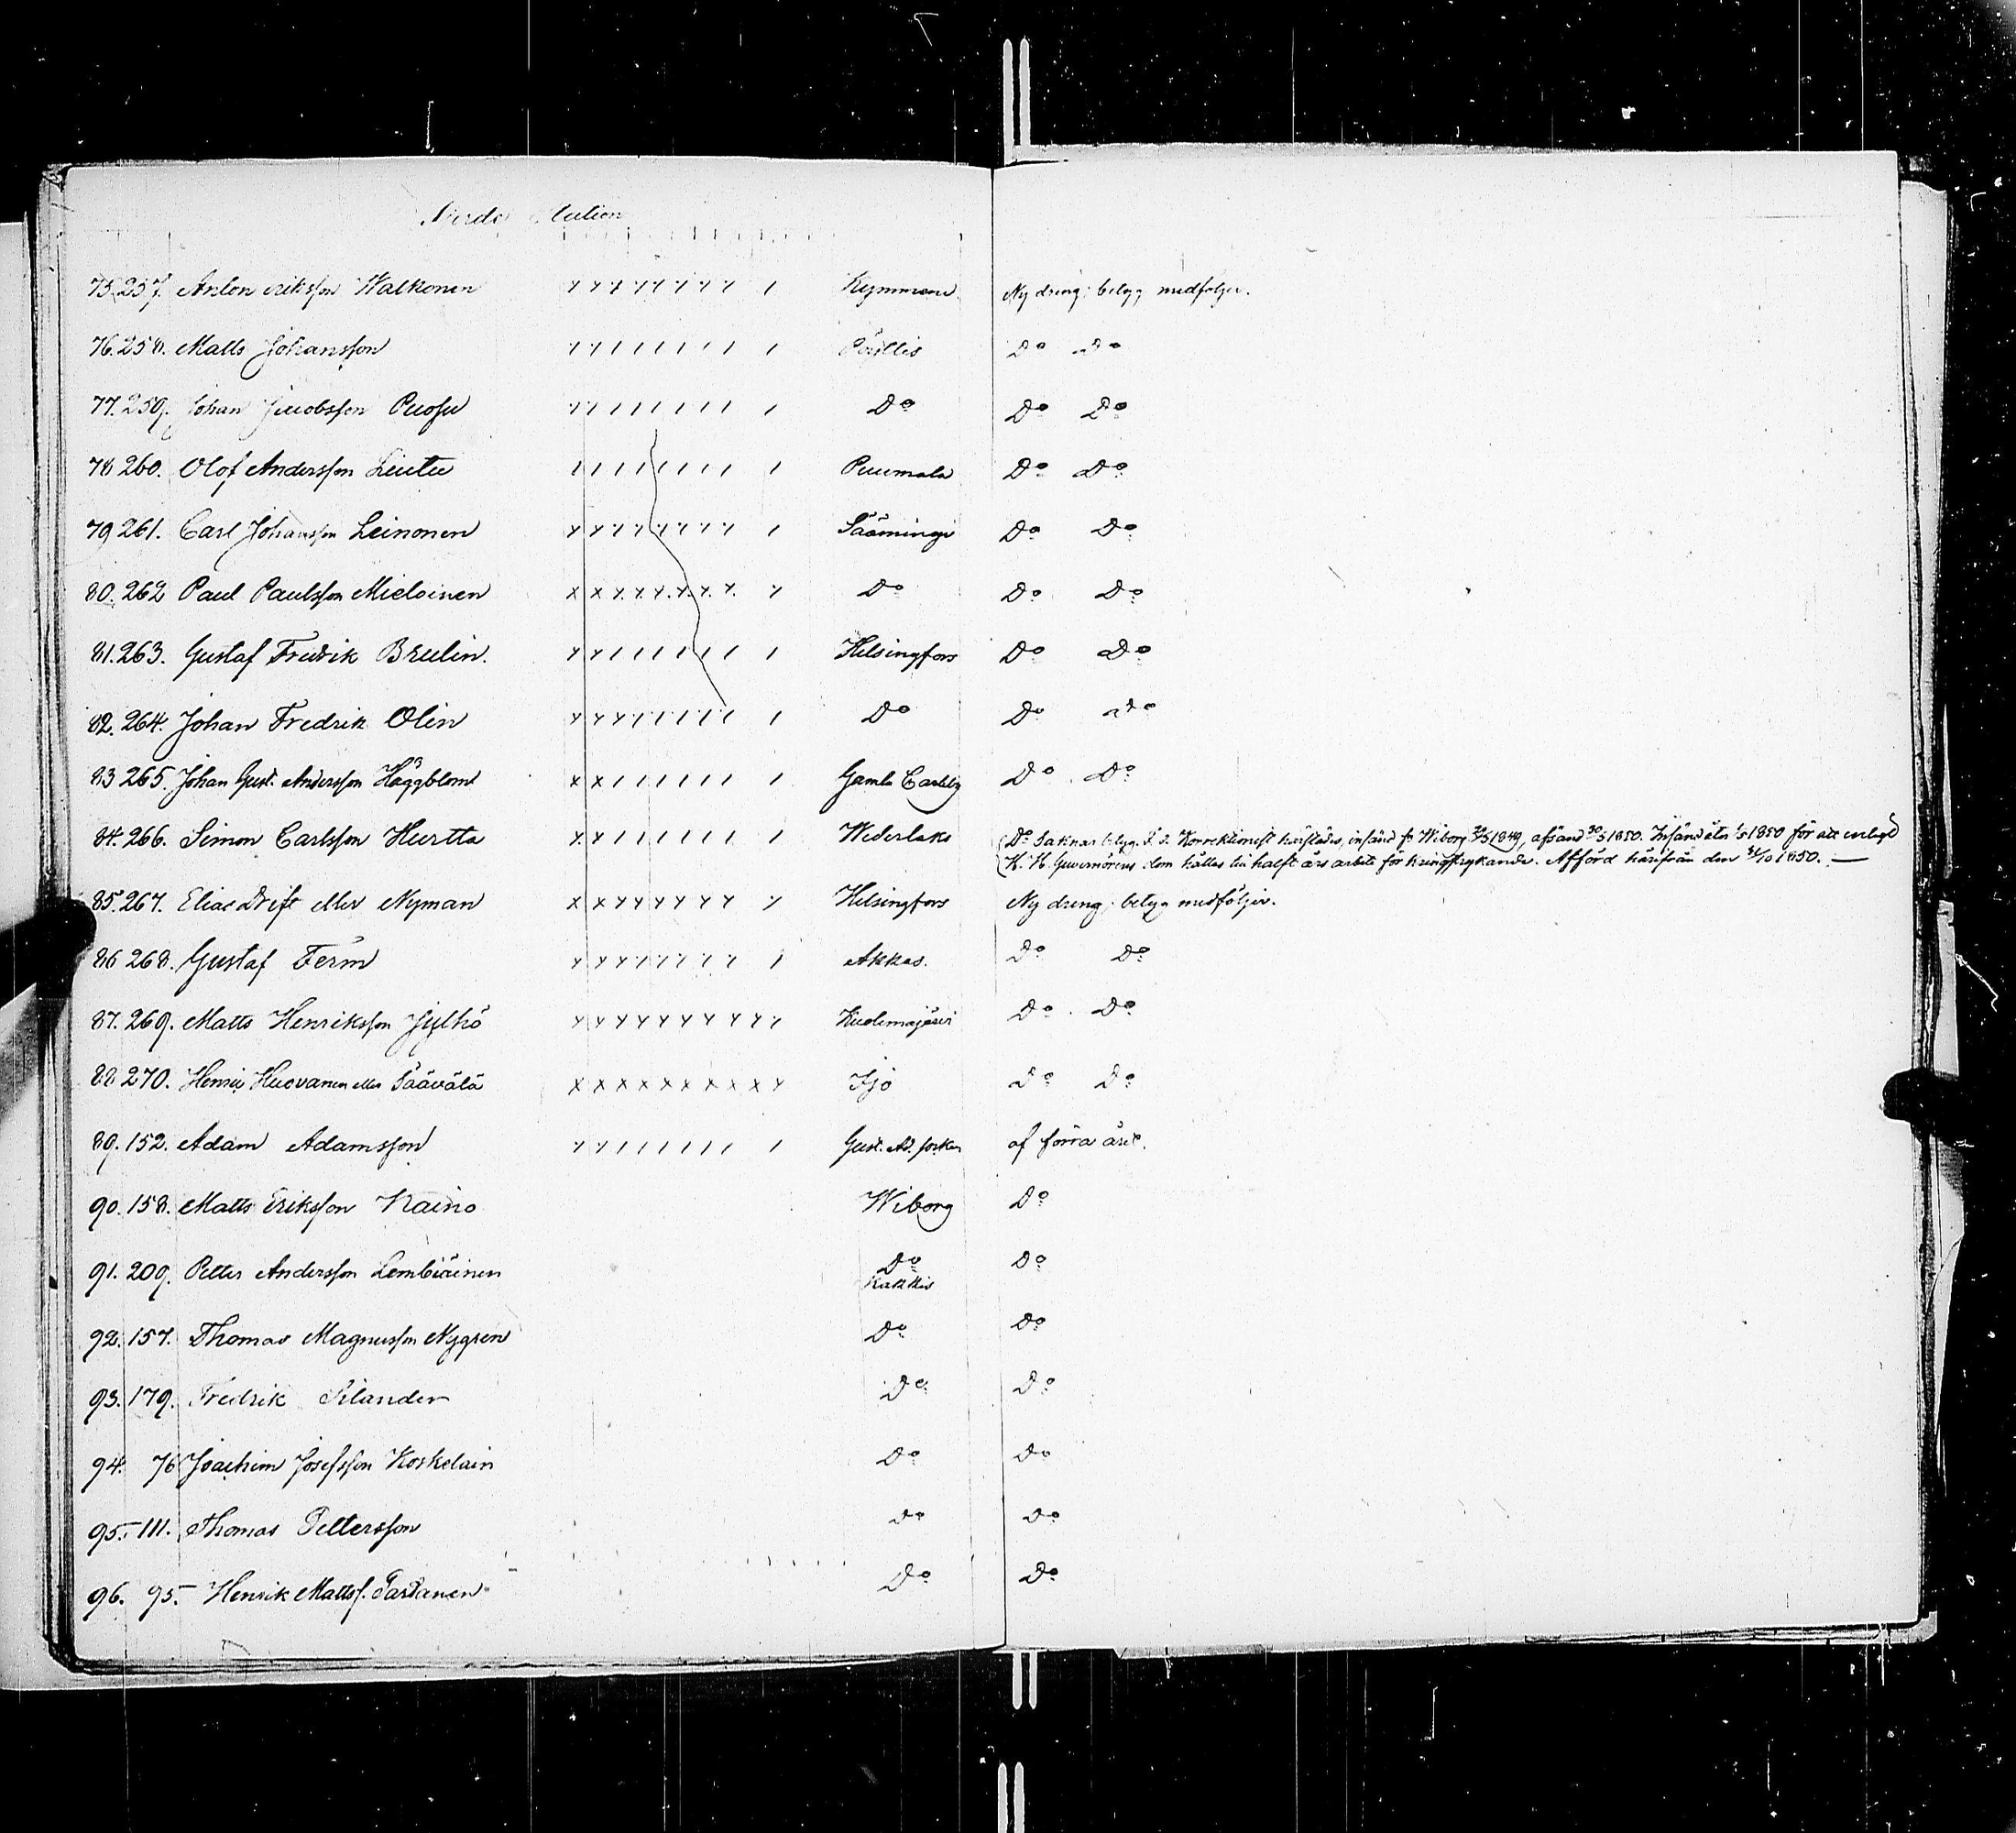 75. 257. Anton Eriksson Walkonen x x x x x x x x / Kymmene Ny dreng; betyg medföljer.
76. 258. Matts Johansson x x / / / / / / / Do Do
77. 259. Johan Jacobsson Puosu x x / / / / / / / Do Do Do
78 260. Olof Andersson Liuta / / / / / / / / / Puumala Do Do
79 261. Carl Johansson Leinonen x x x x x x x x / Säämingi Do Do
80. 262 Paul Paulsson Mieloinen x x x x x x x x x Do Do Do
81. 263. Gustaf Fredrik Brulin. x x / / / / / / / Helsingfors Do Do
82. 264. Johan Fredrik Olin x x x / / / / / / Do Do Do
83 265. Johan Gust. Andersson Häggblom x x / / / / / / / Gamla Carleby Do Do
84. 266. Simon Carlsson Hurtta x x / / / / / / / Wederlaks Do Saknar betyg. d. ä. Korrektionist härstädes, insänd fr Wiborg 1849, afsänd 30/5 1850. Insänd åter 1850 för att enligt
K. H. Guvernörens dom hållas till halft års arbete för kringstrykande. Afförd härifrån den 31/10 1850. —
85. 267. Elias Drift eller Nyman x x x x x x x x x Helsingfors Ny dreng; betyg medföljer.
86 268. Gustaf Ferm x x x x x x x x / Akkas. Do Do
87. 269. Matts Henriksson Jylhö x x x x x x x x x x Kuolemajärvi Do Do
88 270. Henric Huovanen eller Säävälä x x x x x x x x x x Ijo Do Do
89. 152. Adam Adamsson x x / / / / / / / Gust. Ad. socken af förra året.
90. 158. Matts Eriksson Naino Wiborg Do
91. 209. Petter Andersson Lembiäinen Do Do
Kakkis
92. 157. Thomas Magnusson Nygren Do Do
93. 179. Fredrik Silander Do Do
94. 76 Joachim Josefsson Koskelain Do Do
95. 111. Thomas Pettersson Do Do
96. 95. Henrik Mattss. Partanen Do Do